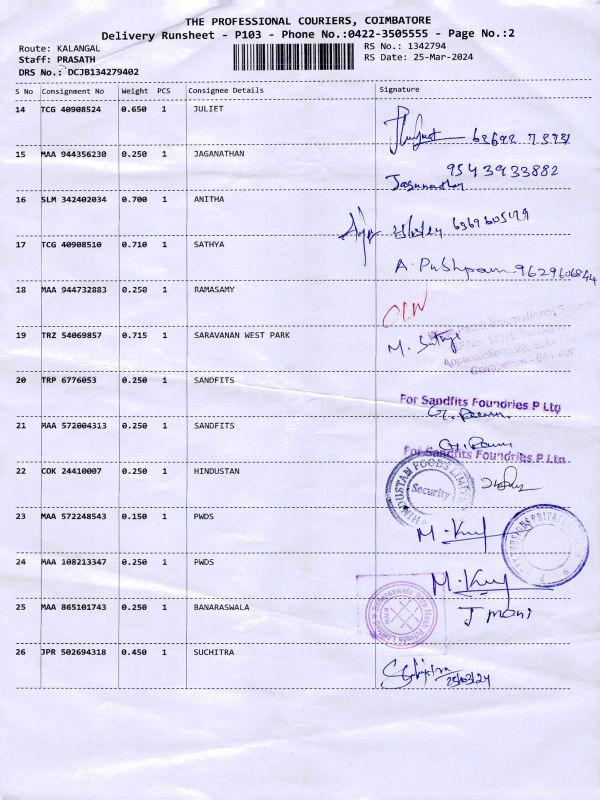 THE PROFESSIONAL COURIERS, COIMBATORE
Delivery Runsheet - P103 - Phone No.:0422-3505555 - Page No.:2
Route: KALANGAL RS No.: 1342794
Staff: PRASATH RS Date: 25-Mar-2024
DRS No.: DCJB134279402
S No Consignment No Weight PCS Consignee Details Signature
14 TCG 40908524 0.650 1 JULIET
15 MAA 944356230 0.250 1 JAGANATHAN 9543933882
Jaganathan
16 SLM 342402034 0.700 1 ANITHA
17 TCG 40908510 0.710 1 SATHYA A. Pushpam 9629606844
18 MAA 944732883 0.250 1 RAMASAMY
19 TRZ 54069857 0.715 1 SARAVANAN WEST PARK M. Sathya
20 TRP 6776053 0.250 1 SANDFITS For Sandfits Foundries P Ltd
21 MAA 572004313 0.250 1 SANDFITS For Sandfits Foundries P Ltd
22 COK 24410007 0.250 1 HINDUSTAN HINDUSTAN FOODS LIMITED Security
23 MAA 572248543 0.150 1 PWDS
24 MAA 108213347 0.250 1 PWDS
25 MAA 865101743 0.250 1 BANARASWALA J mani
26 JPR 502694318 0.450 1 SUCHITRA
25/03/24